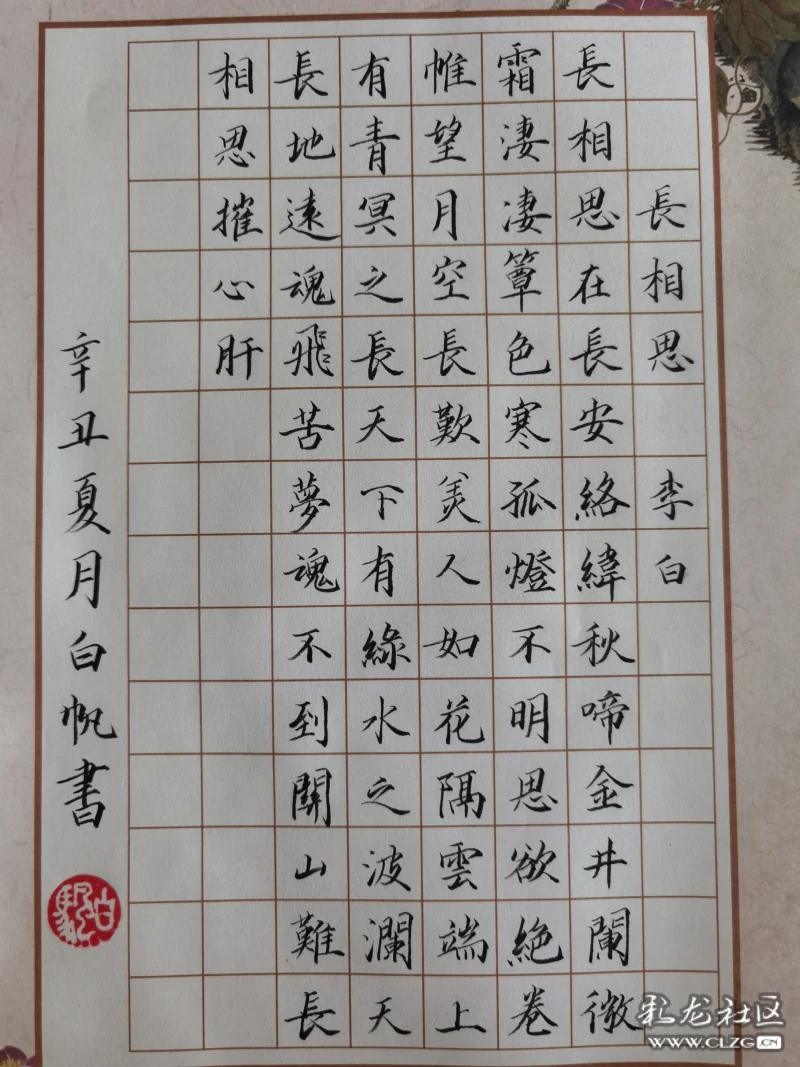 長相思 李白
長相思在長安絡緯秋啼金井闌微
霜淒淒簟色寒孤燈不明思欲絶卷
帷望月空長歎美人如花隔雲端上
有青冥之長天下有綠水之波瀾天
長地遠魂飛苦夢魂不到關山難長
相思摧心肝
辛丑夏月白帆書
彩龙社区
WWW.CLZG.CN